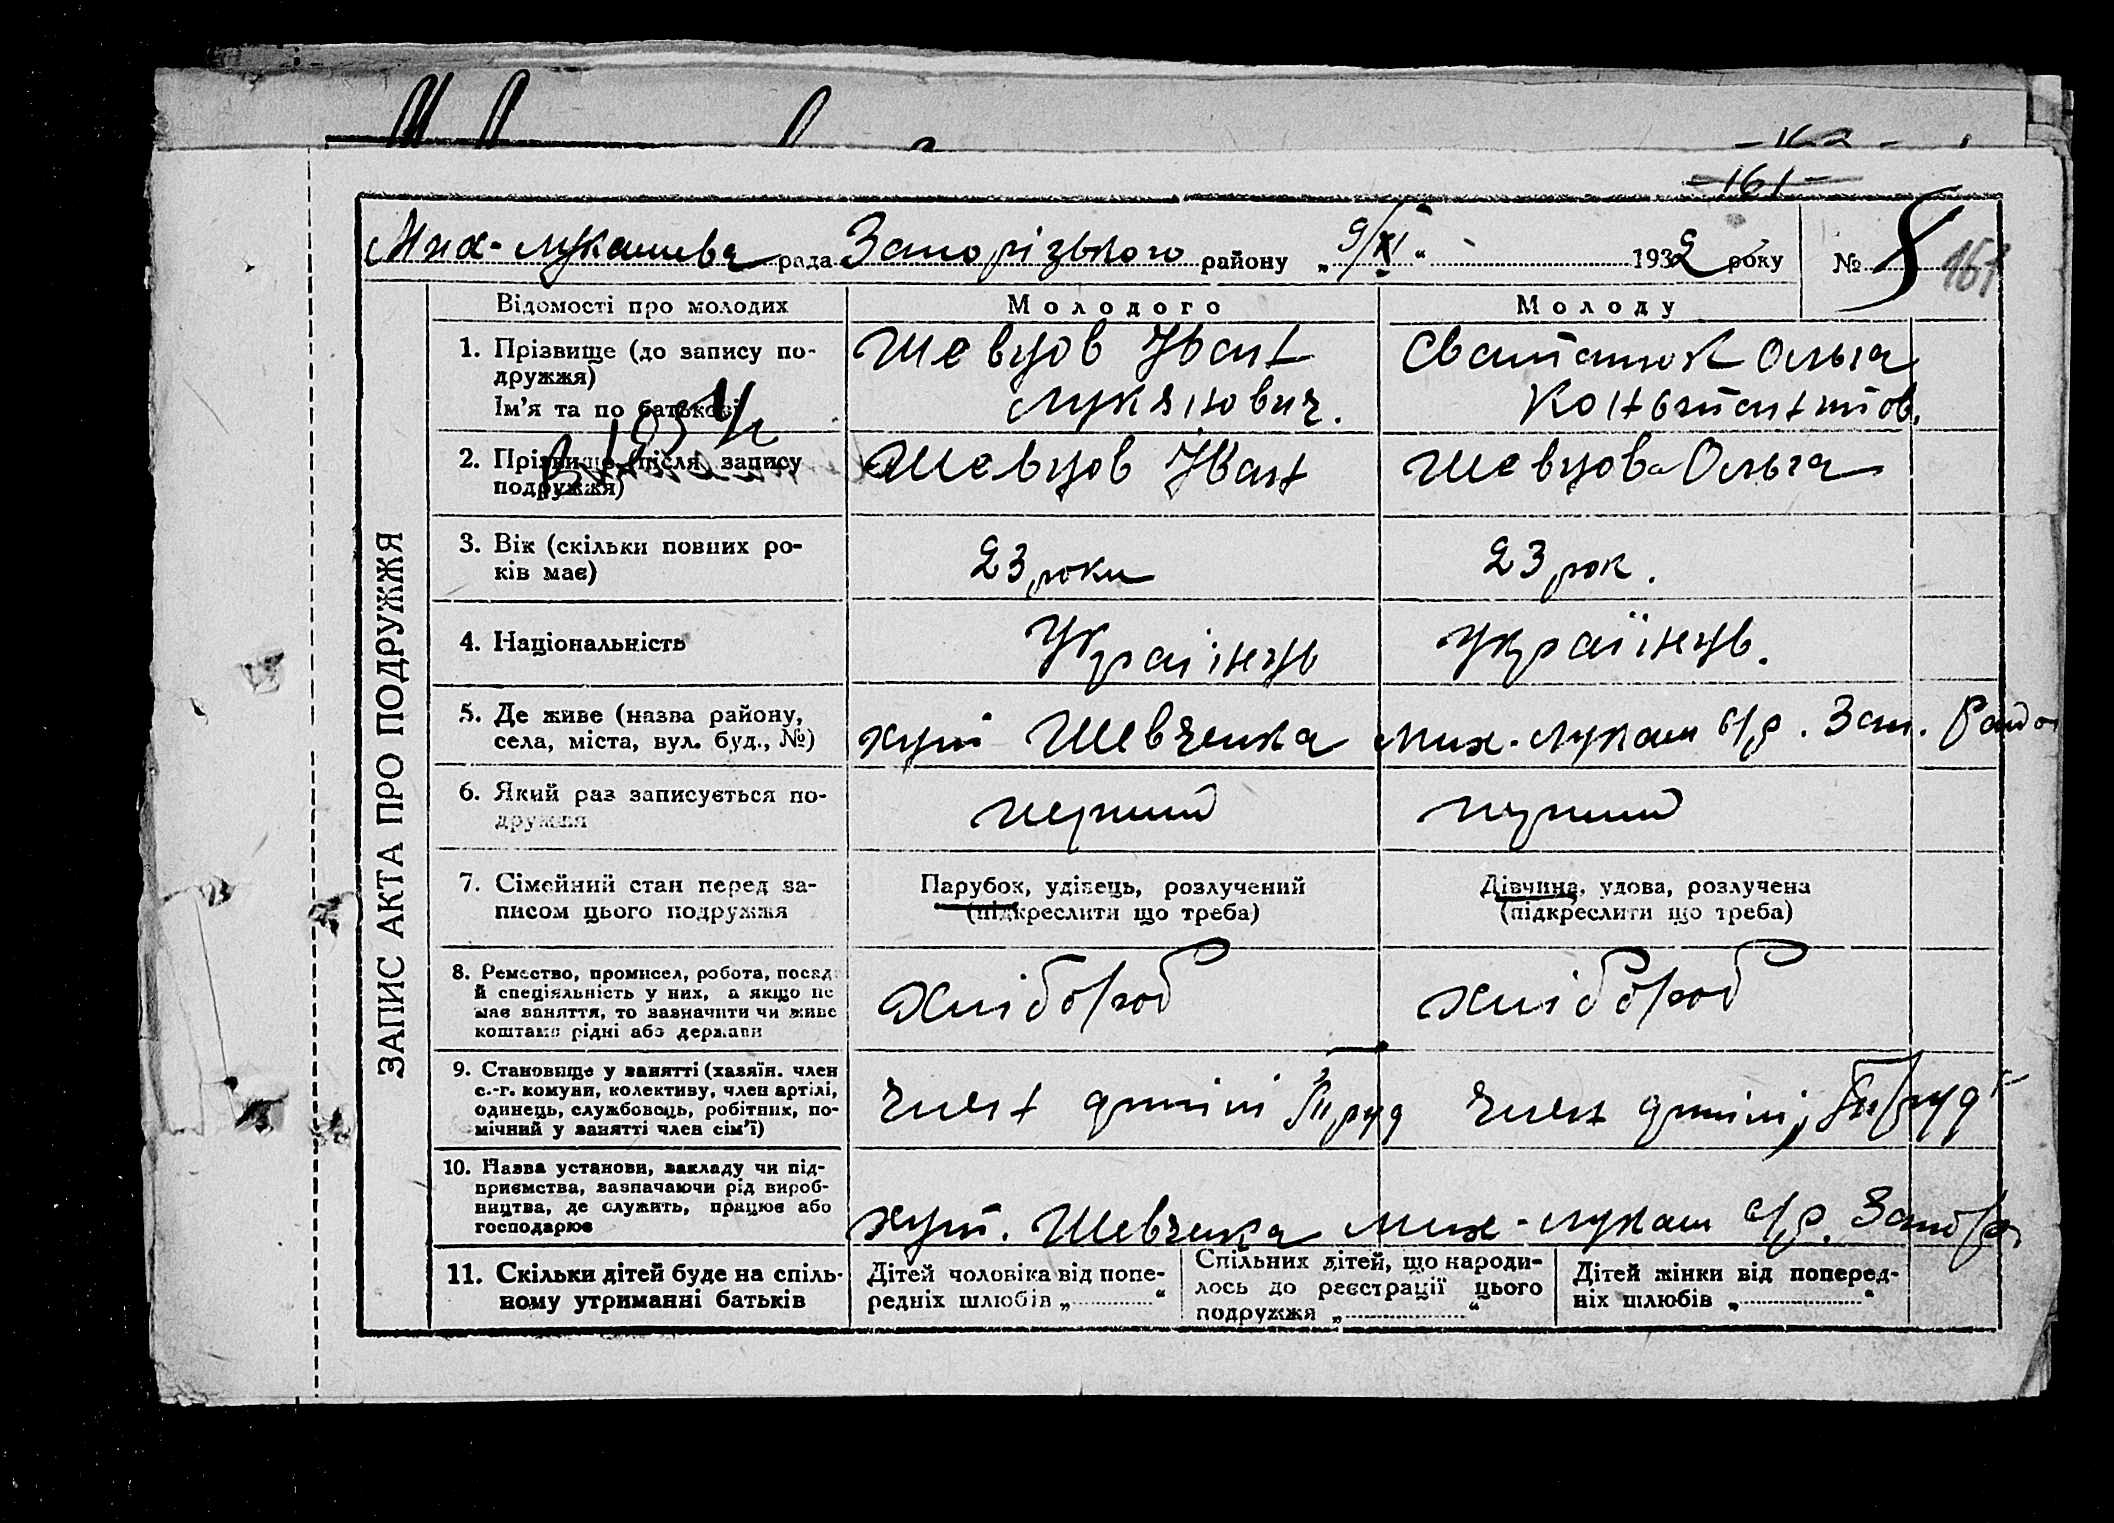 -161-
Мих-лукашева рада Запорізького району „9/XI“ 1932 року № 8 161
ЗАПИС АКТА ПРО ПОДРУЖЖЯ
Відомості про молодих Молодого Молоду
1. Прізвище (до запису по- Шевцов Іван Ольга
дружжя)
Ім'я та по батькові Лукянович. Константинов.
2. Прізвище після запису Шевцов Іван Шевцова Ольга
подружжя)
3. Вік (скільки повних ро- 23 роки 23 рок.
ків має)
4. Національність Українець Українець.
5. Де живе (назва району, хут Шевченка Мих-лукаш с/р. Зап. Район
села, міста, вул. буд., №)
6. Який раз записується по- перший перший
дружжя
7. Сімейний стан перед за- Парубок, удівець, розлучений Дівчина, удова, розлучена
писом цього подружжя (підкреслити що треба) (підкреслити що треба)
8. Ремество, промисел, робота, посада
й спеціяльність у них, а якщо не хлібороб хлібороб
має заняття, то зазначити чи живе
коштами рідні або держави
9. Становище у занятті (хазяїн. член
с.-г. комуни, колективу, член артілі, член артілі член артілі
одинець, службовець, робітник, по-
мічний у занятті член сім'ї)
10. Назва установи, закладу чи під-
приємства, зазначаючи рід вироб-
ництва, де служить, працює або хут. Шевченка Мих-лукаш с/р.
господарює
11. Скільки дітей буде на спіль- Дітей чоловіка від попе- Спільних дітей, що народи- Дітей жінки від поперед-
ному утриманні батьків редніх шлюбів „ “ лось до реєстрації цього ніх шлюбів „ “
подружжя „ “